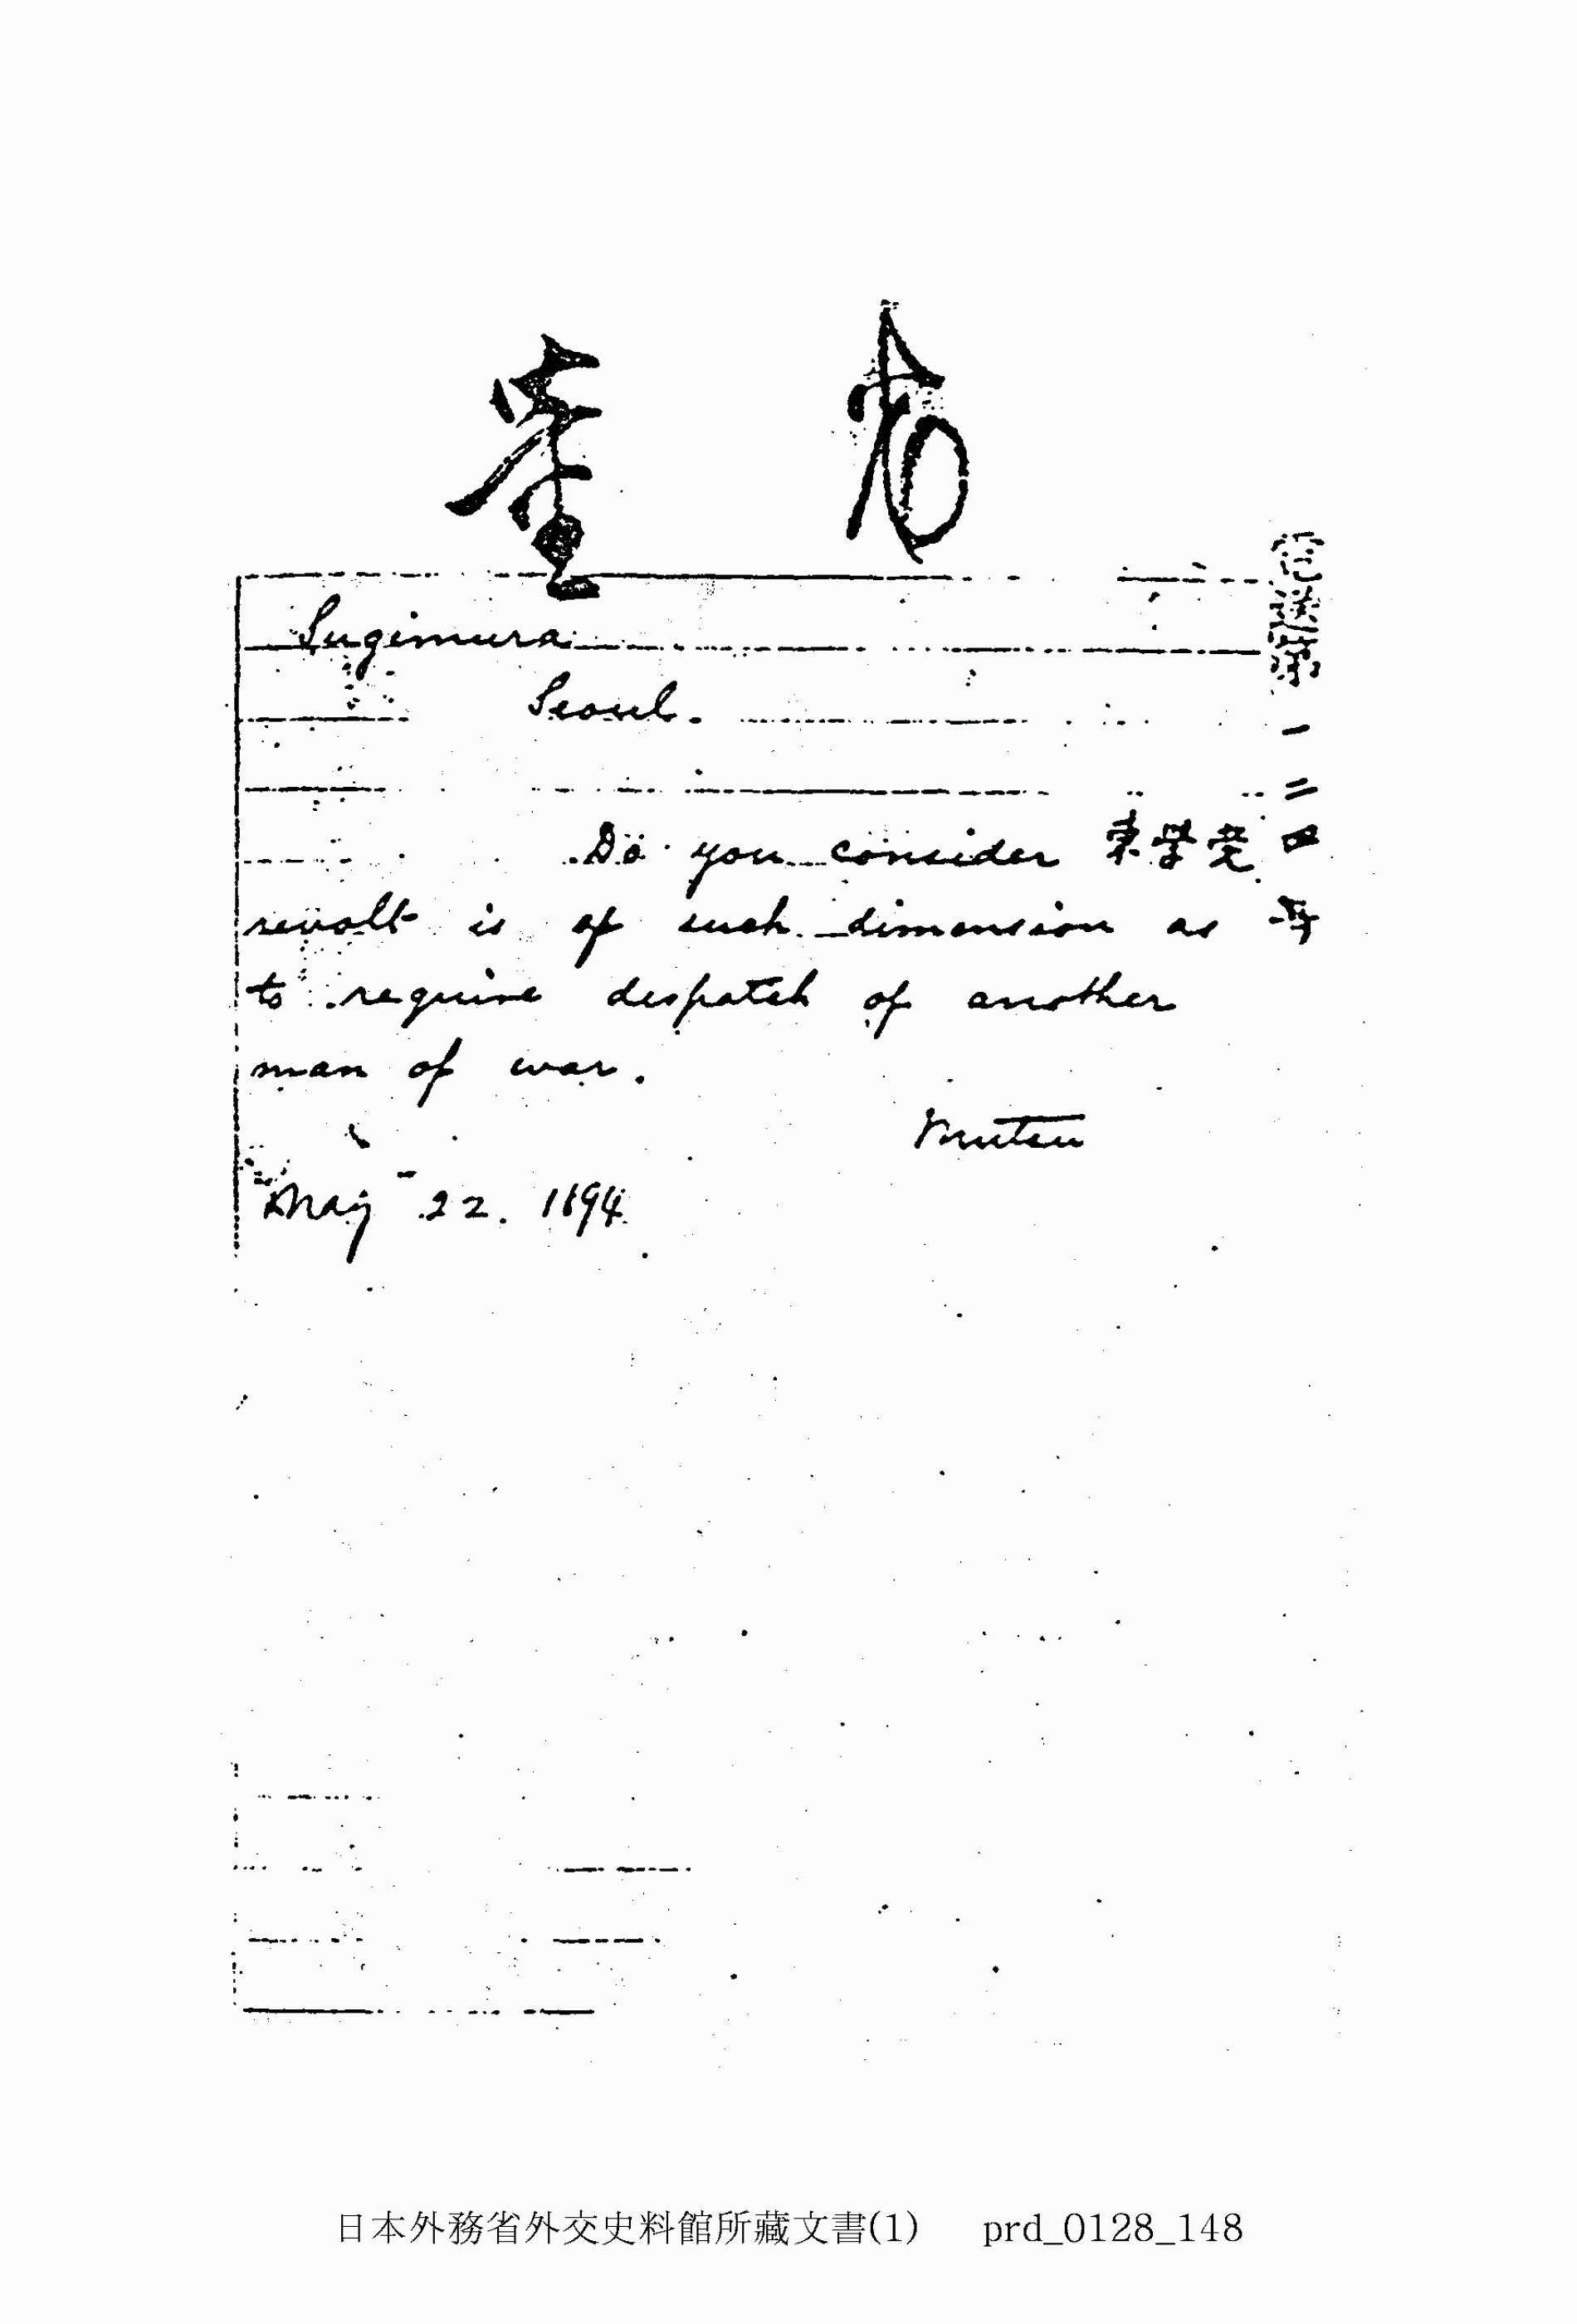 電送第一二四号
Sugimura
Seoul.
Do you consider 東学党
revolt is of such dimension as
to require despatch of another
man of war.
Mutsu
May 22. 1894
日本外務省外交史料館所藏文書(1) prd_0128_148